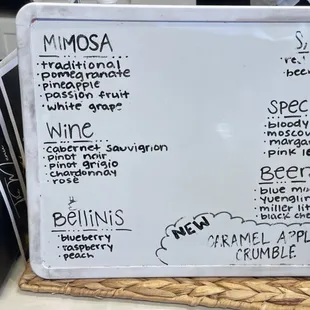 MIMOSA
·traditional
·pomegranate
·pineapple
·passion fruit
·white grape
Wine
·cabernet sauvigrion
·pinot noir
·pinot grigio
·chardonnay
·rosé
BELLINIS
·blueberry
·raspberry
·peach
·bloody
·pink
Beer
·blue
·miller lit
·black
NEW
CARAMEL APPL
CRUMBLE